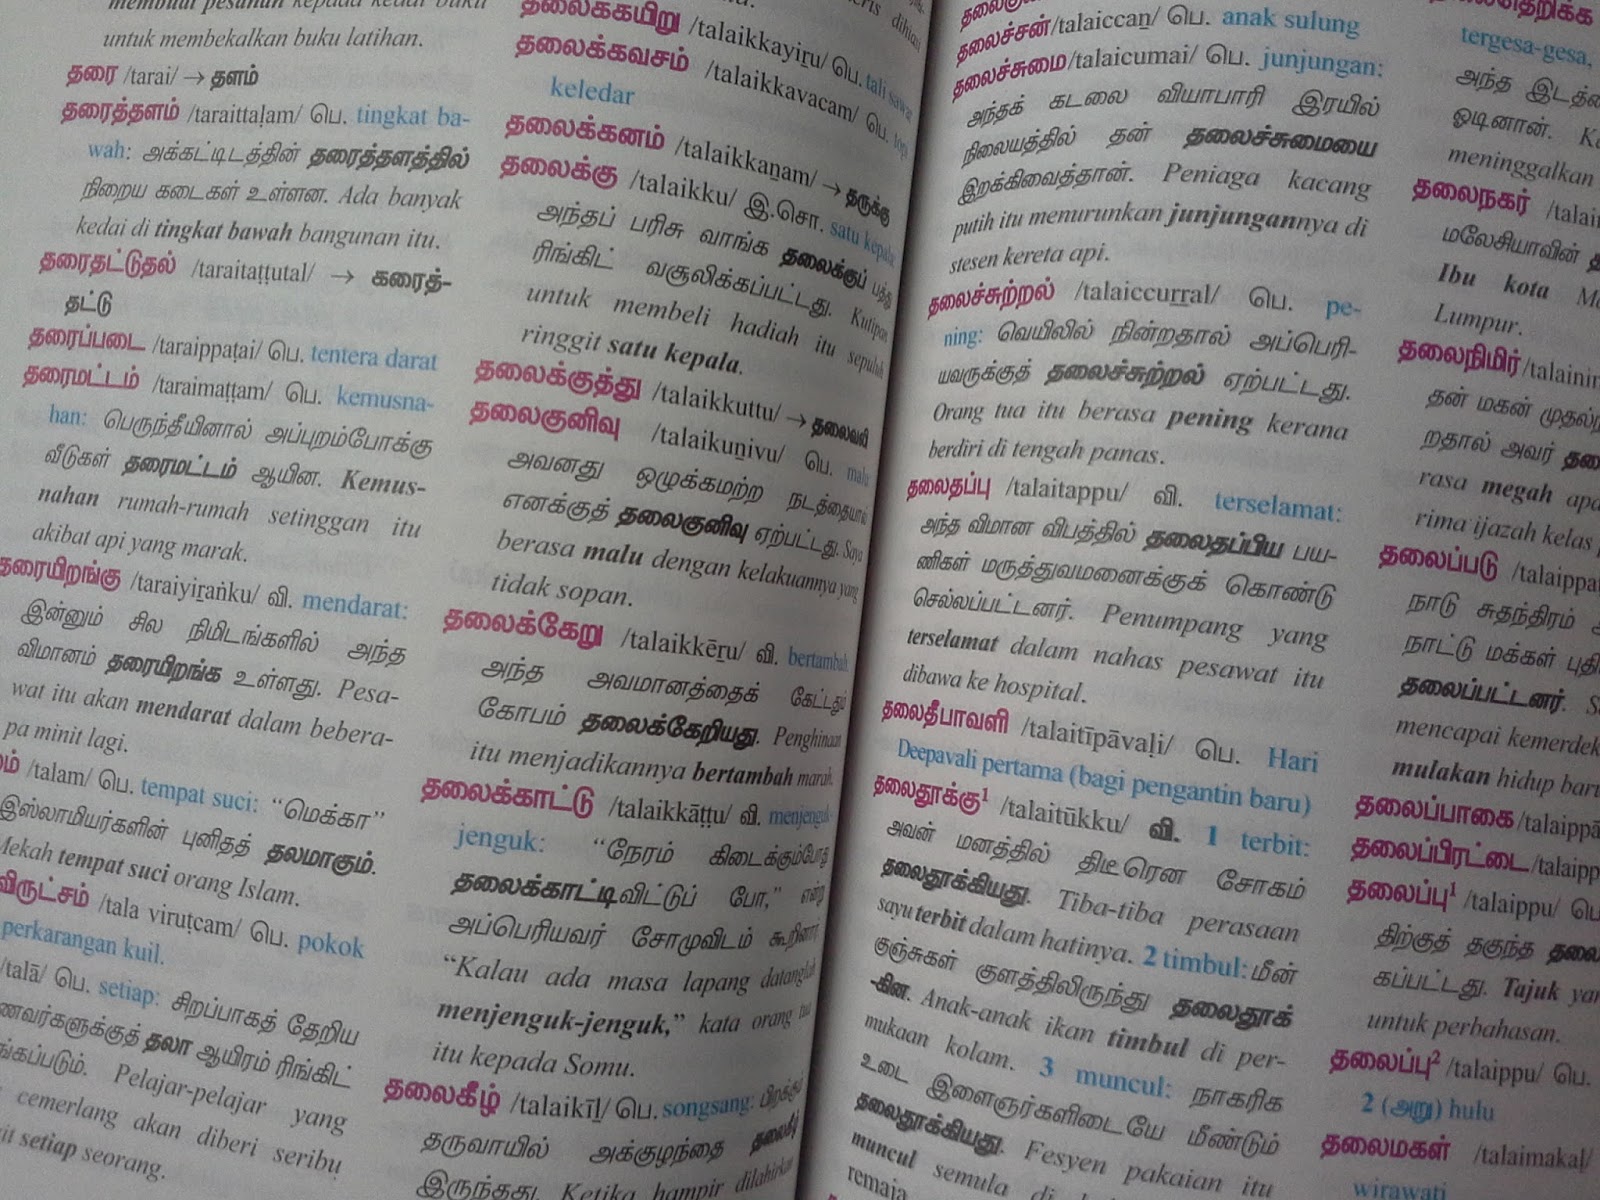 membuat pesanan kepada kedai buku
untuk membekalkan buku latihan.
தரை /tarai/ → தளம்
தரைத்தளம் /taraittaḷam/ பெ. tingkat ba-
wah: அக்கட்டிடத்தின் தரைத்தளத்தில்
நிறைய கடைகள் உள்ளன. Ada banyak
kedai di tingkat bawah bangunan itu.
தரைதட்டுதல் /taraitaṭṭutal/ → கரைத்-
தட்டு
தரைப்படை /taraippaṭai/ பெ. tentera darat
தரைமட்டம் /taraimaṭṭam/ பெ. kemusna-
han: பெருந்தீயினால் அப்புறம்போக்கு
வீடுகள் தரைமட்டம் ஆயின. Kemus-
nahan rumah-rumah setinggan itu
akibat api yang marak.
தரையிறங்கு /taraiyiṟaṅku/ வி. mendarat:
இன்னும் சில நிமிடங்களில் அந்த
விமானம் தரையிறங்க உள்ளது. Pesa-
wat itu akan mendarat dalam bebera-
pa minit lagi.
/talam/ பெ. tempat suci: “மெக்கா”
இஸ்லாமியர்களின் புனிதத் தலமாகும்.
Mekah tempat suci orang Islam.
விருட்சம் /tala viruṭcam/ பெ. pokok
perkarangan kuil.
/talā/ பெ. setiap: சிறப்பாகத் தேறிய
தலா ஆயிரம் ரிங்கிட்
Pelajar-pelajar yang
cemerlang akan diberi seribu
setiap seorang.
தலைக்கயிறு /talaikkayiṟu/ பெ. tali
தலைக்கவசம் /talaikkavacam/ பெ. topi
keledar
தலைக்கனம் /talaikkaṉam/ → தருக்கு
தலைக்கு /talaikku/ இ.சொ. satu kepala:
அந்தப் பரிசு வாங்க தலைக்குப் பத்து
ரிங்கிட் வசூலிக்கப்பட்டது. Kutipan
untuk membeli hadiah itu sepuluh
ringgit satu kepala.
தலைக்குத்து /talaikkuttu/ → தலைவலி
தலைகுனிவு /talaikuṉivu/ பெ. malu:
அவனது ஒழுக்கமற்ற நடத்தையால்
எனக்குத் தலைகுனிவு ஏற்பட்டது. Saya
berasa malu dengan kelakuannya yang
tidak sopan.
தலைக்கேறு /talaikkēṟu/ வி. bertambah:
அந்த அவமானத்தைக் கேட்டதும்
கோபம் தலைக்கேறியது. Penghinaan
itu menjadikannya bertambah marah.
தலைக்காட்டு /talaikkāṭṭu/ வி. menjenguk-
jenguk: “நேரம் கிடைக்கும்போது
தலைக்காட்டிவிட்டுப் போ,” என்று
அப்பெரியவர் சோமுவிடம் கூறினார்.
“Kalau ada masa lapang datanglah
menjenguk-jenguk,” kata orang tua
itu kepada Somu.
தலைகீழ் /talaikīḻ/ பெ. songsang: பிறக்கும்
தருவாயில் அக்குழந்தை தலைகீழ்
இருந்தது. Ketika hampir dilahirkan
தலைச்சன் /talaiccaṉ/ பெ. anak sulung
தலைச்சுமை /talaicumai/ பெ. junjungan:
அந்தக் கடலை வியாபாரி இரயில்
நிலையத்தில் தன் தலைச்சுமையை
இறக்கிவைத்தான். Peniaga kacang
putih itu menurunkan junjungannya di
stesen kereta api.
தலைச்சுற்றல் /talaiccuṟṟal/ பெ. pe-
ning: வெயிலில் நின்றதால் அப்பெரி-
யவருக்குத் தலைச்சுற்றல் ஏற்பட்டது.
Orang tua itu berasa pening kerana
berdiri di tengah panas.
தலைதப்பு /talaitappu/ வி. terselamat:
அந்த விமான விபத்தில் தலைதப்பிய பய-
ணிகள் மருத்துவமனைக்குக் கொண்டு
செல்லப்பட்டனர். Penumpang yang
terselamat dalam nahas pesawat itu
dibawa ke hospital.
தலைதீபாவளி /talaitīpāvaḷi/ பெ. Hari
Deepavali pertama (bagi pengantin baru)
தலைதூக்கு¹ /talaitūkku/ வி. 1 terbit:
அவன் மனத்தில் திடீரென சோகம்
தலைதூக்கியது. Tiba-tiba perasaan
sayu terbit dalam hatinya. 2 timbul: மீன்
குஞ்சுகள் குளத்திலிருந்து தலைதூக்
-கின. Anak-anak ikan timbul di per-
mukaan kolam. 3 muncul: நாகரிக
உடை இளைஞர்களிடையே மீண்டும்
தலைதூக்கியது. Fesyen pakaian itu
muncul semula di
remaja.
tergesa-gesa,
அந்த
ஓடினான்.
meninggalkan
தலைநகர்
மலேசியாவின்
Ibu kota
Lumpur.
தலைநிமிர்
தன் மகன்
றதால் அவர்
rasa megah
rima ijazah kelas
தலைப்படு
நாடு சுதந்திரம்
நாட்டு மக்கள்
தலைப்பட்டனர்.
mencapai
mulakan hidup
தலைப்பாகை
தலைப்பிரட்டை
தலைப்பு¹ /talaippu/
திற்குத் தகுந்த
கப்பட்டது. Tajuk
untuk perbahasan.
தலைப்பு² /talaippu/ பெ.
2 (அறு) hulu
தலைமகள் /talaimakaḷ/
wirawati